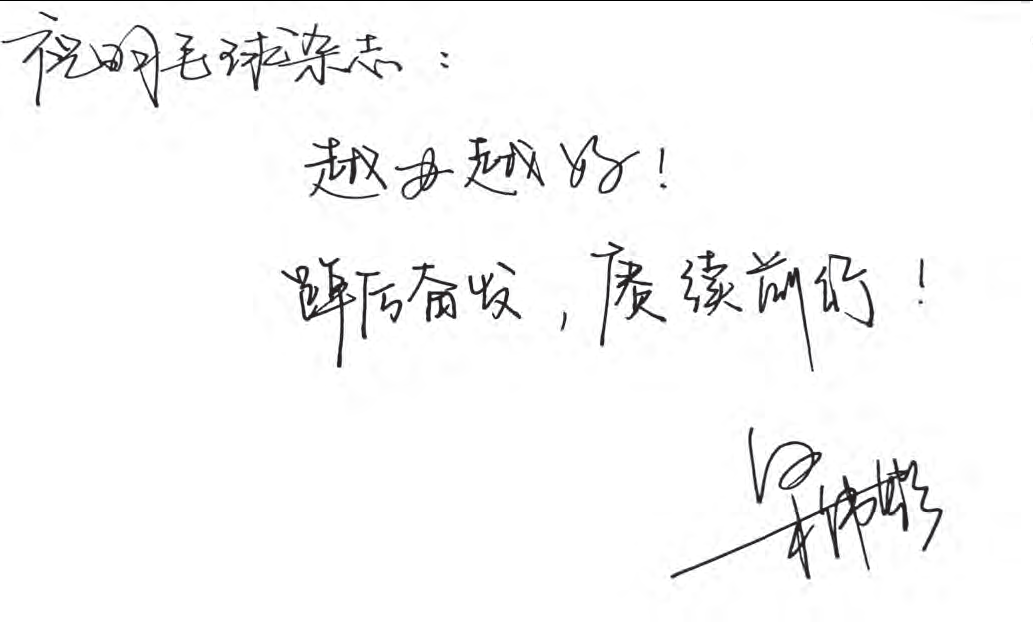 祝羽毛球杂志：
越办越好！
踔厉奋发，赓续前行！